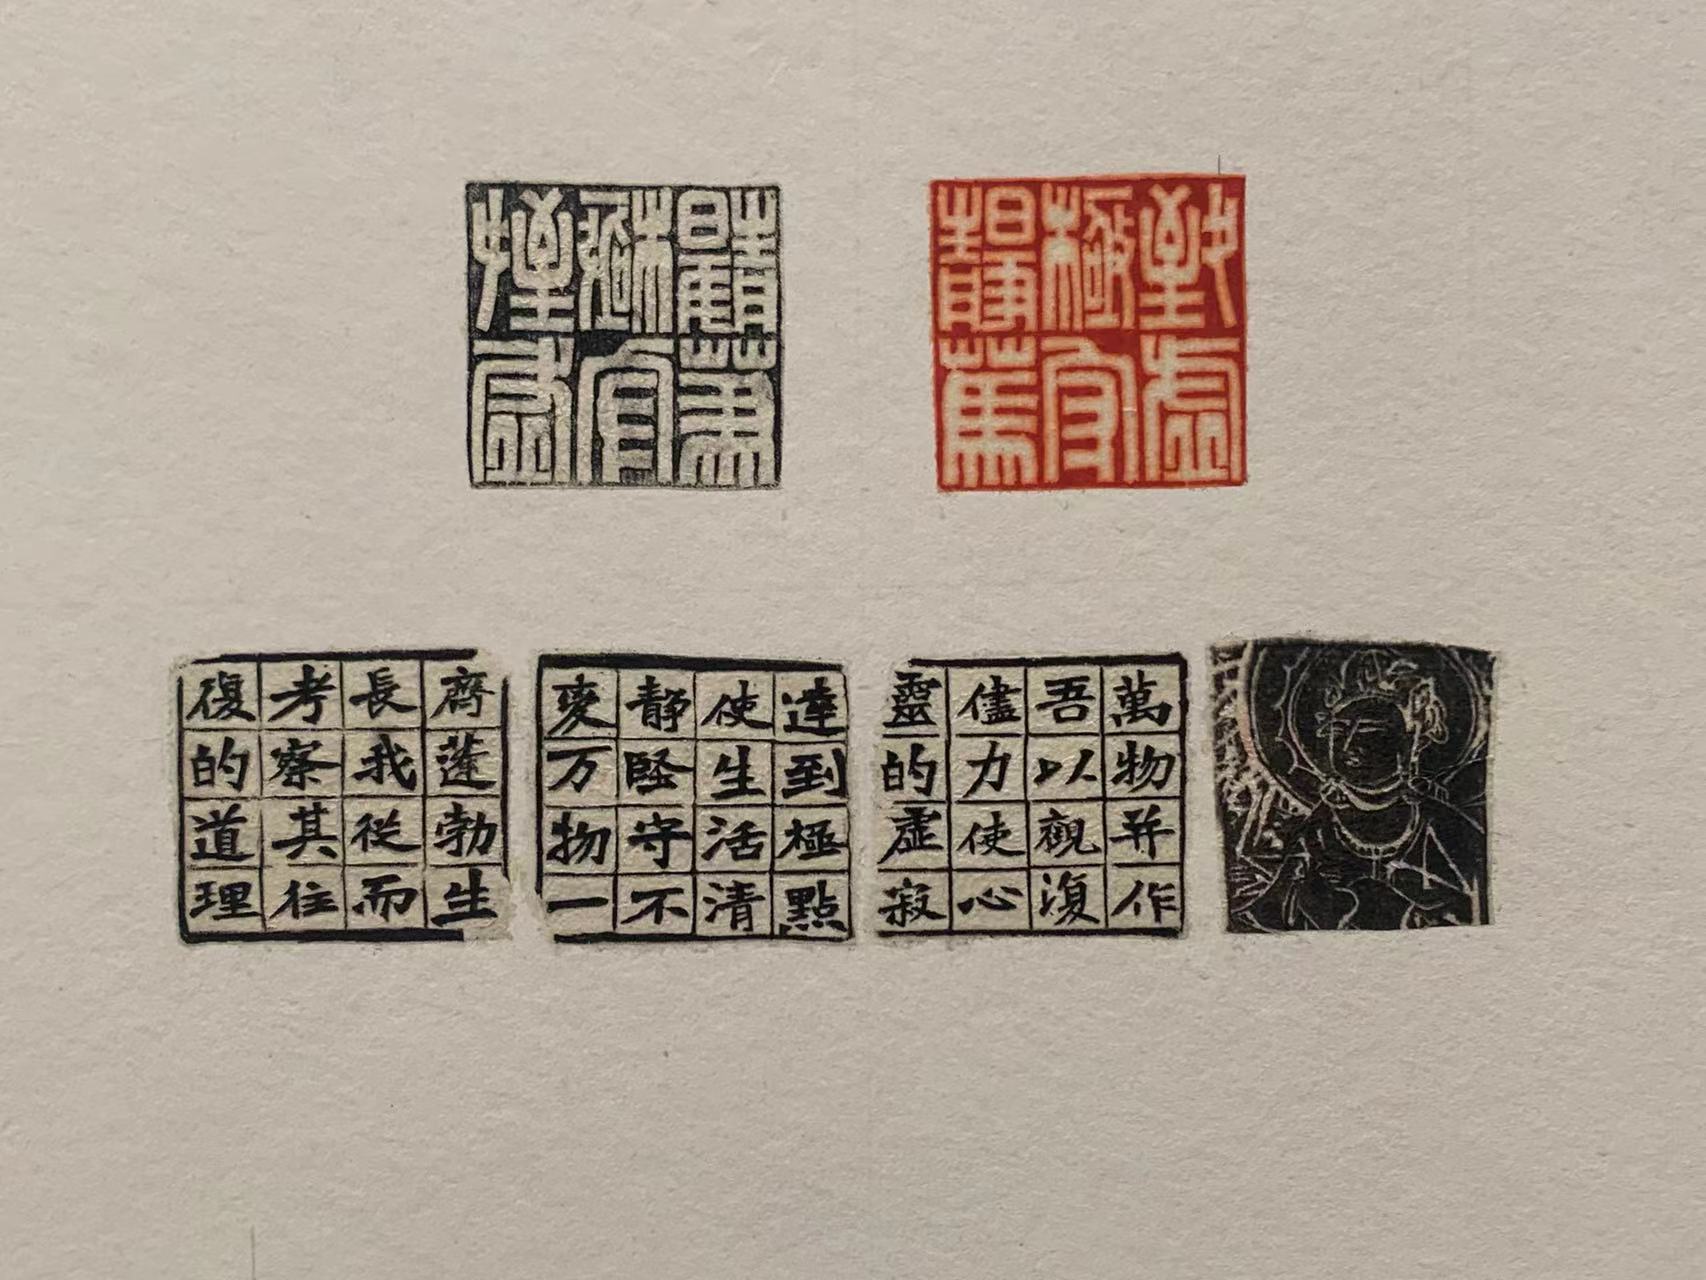 致虛
極守
靜篤
致虛
極守
靜篤
萬物并作
吾以觀復
儘力使心
靈的虛寂
達到極點
使生活清
静堅守不
変万物一
齊蓬勃生
長我從而
考察其往
復的道理